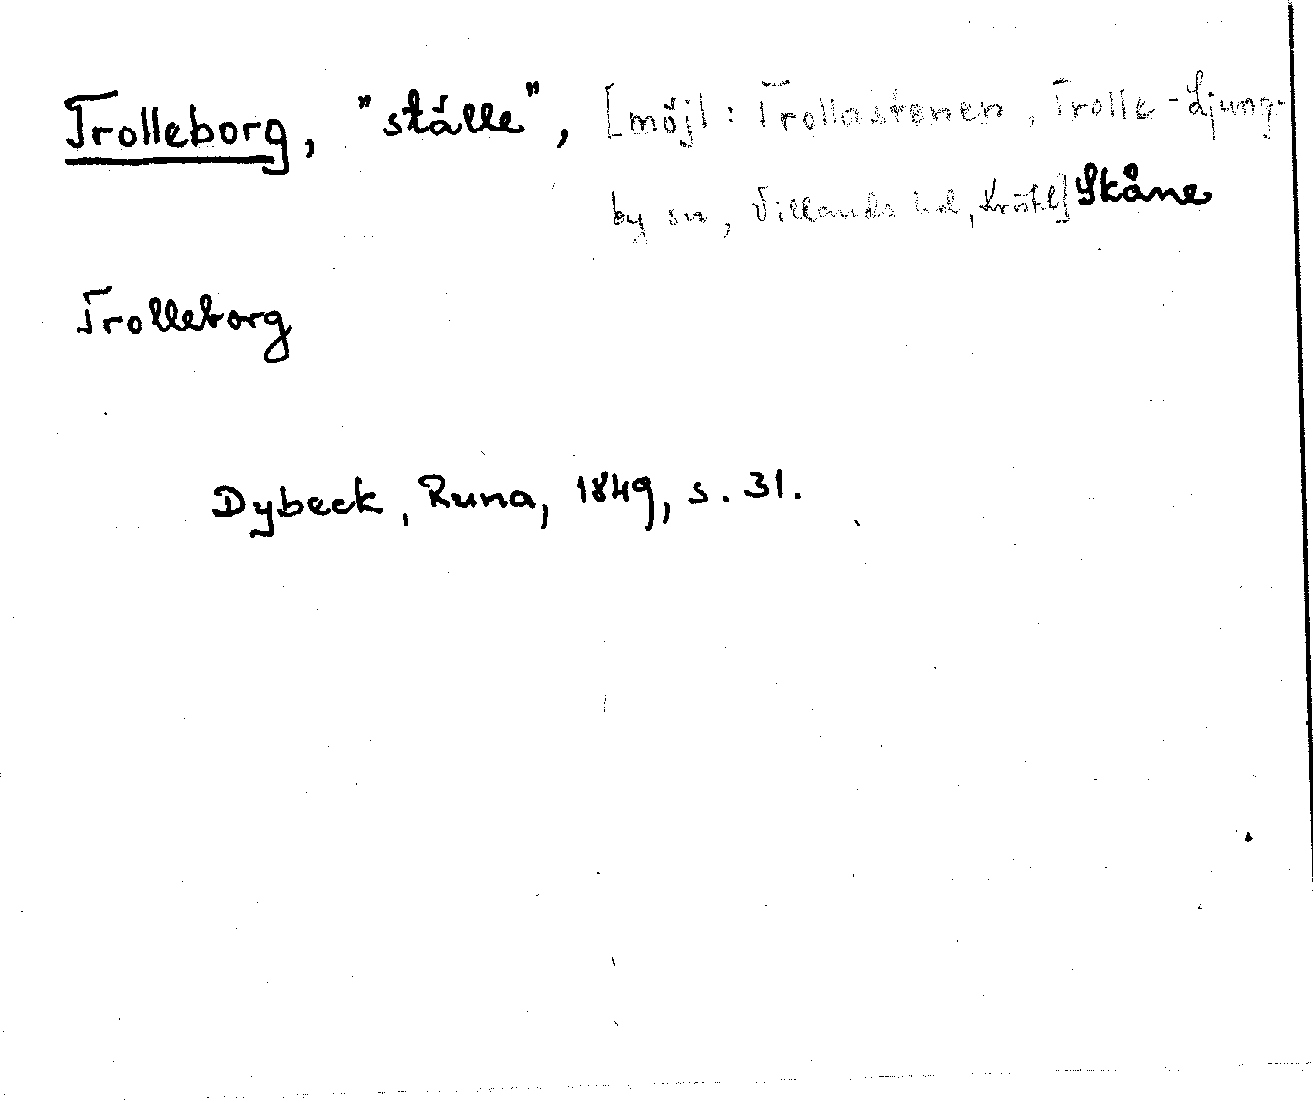 Trolleborg, "ställe", [möjl: Trollastenen, Trolle-Ljung-
by sn, Villands hd, Kristl] Skåne
Trolleborg
Dybeck, Runa, 1849, s. 31.